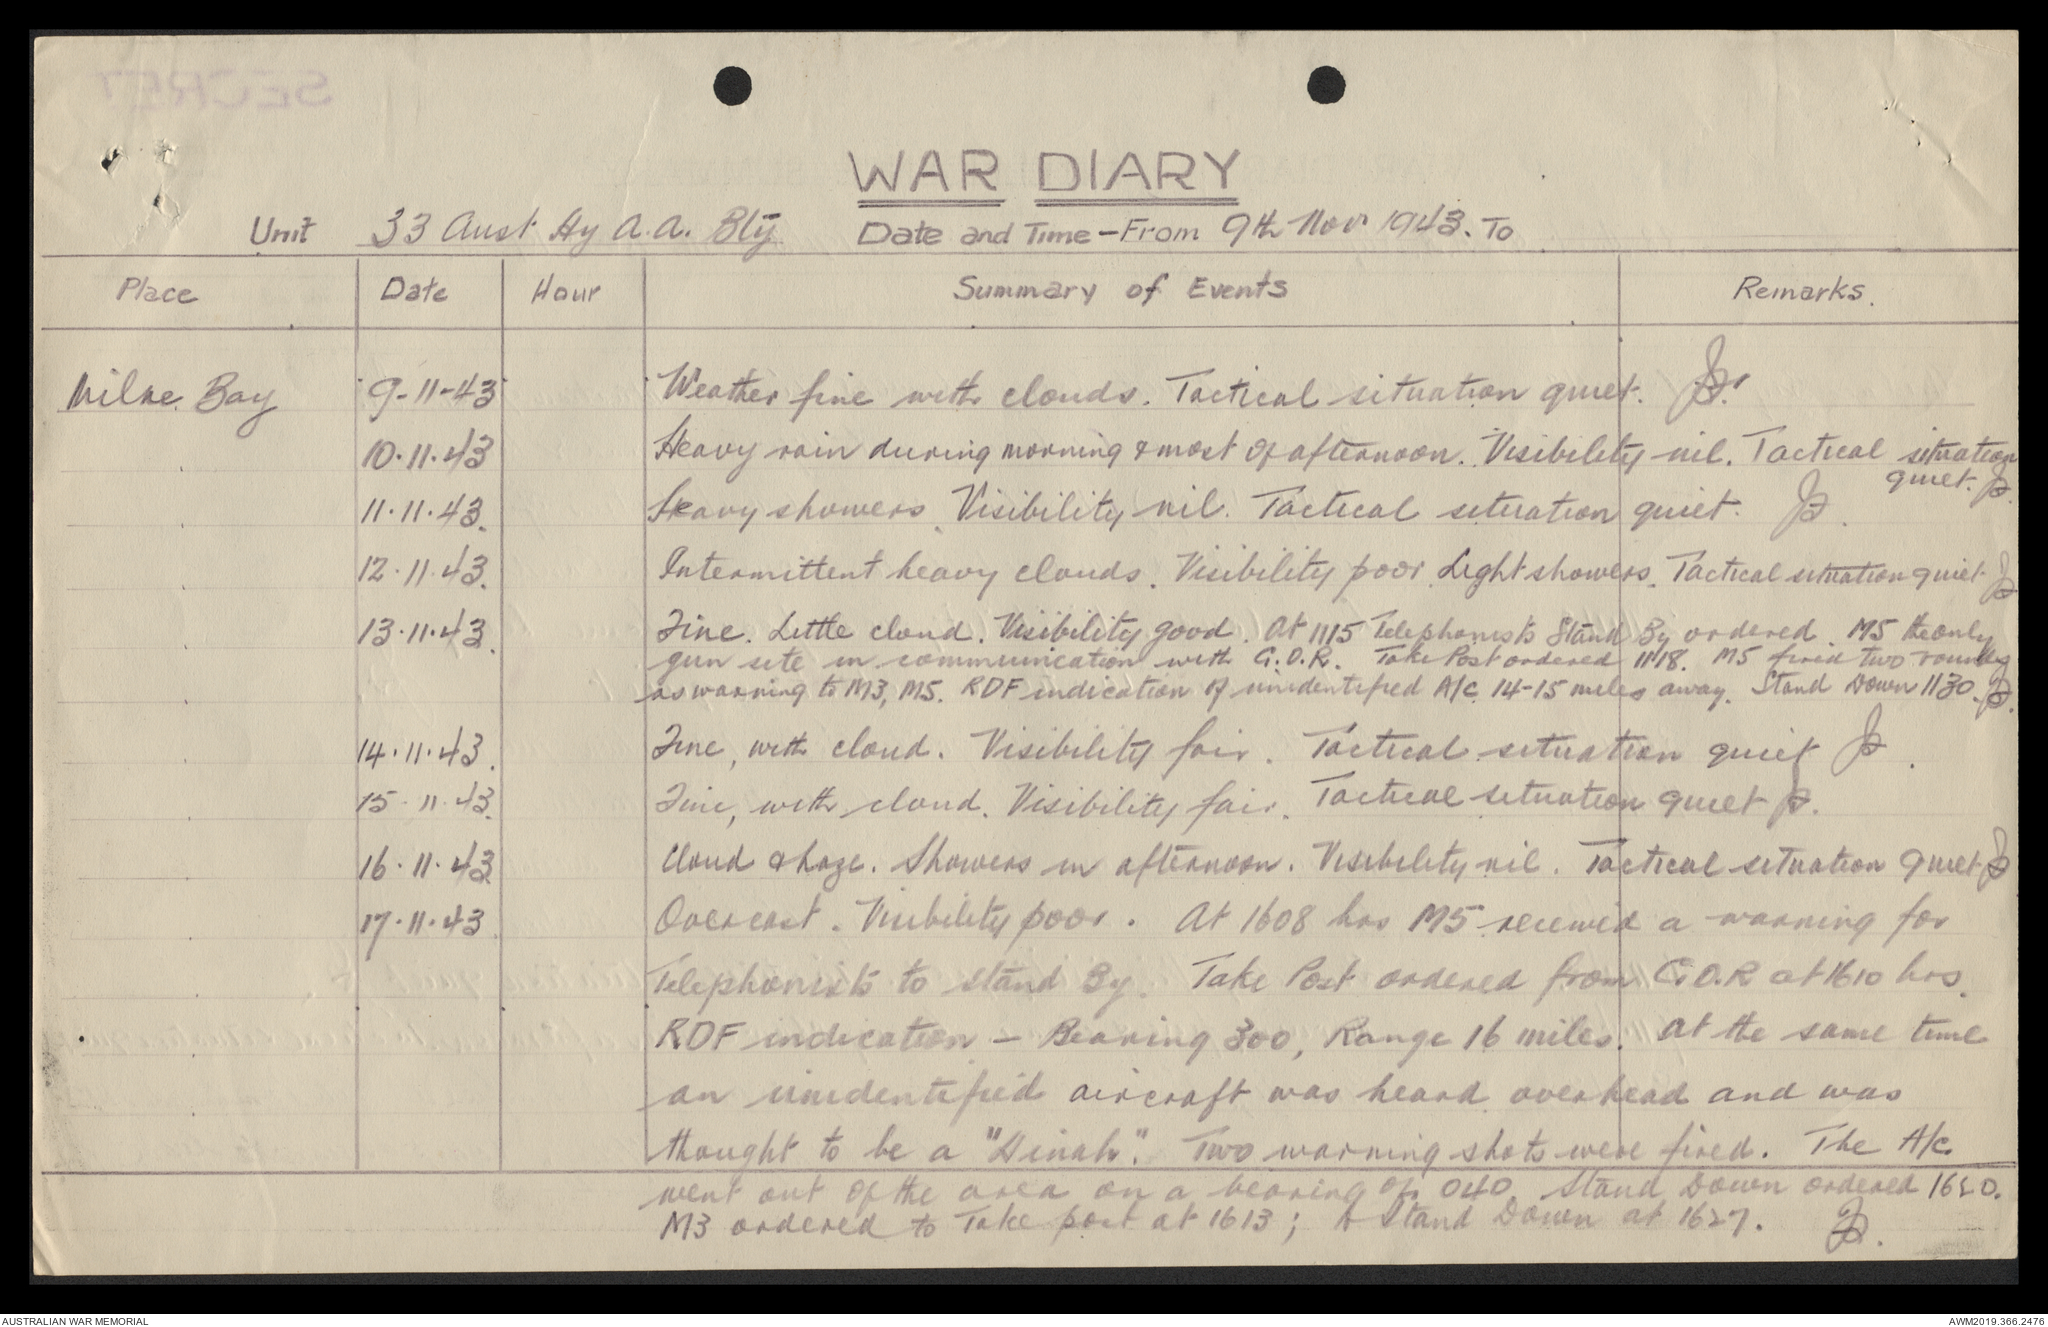 SECRET
WAR DIARY
Unit 33 Aust Hy A.A. Bty Date and Time - From 9th Nov 1943. To
Place Date Hour Summary of Events Remarks.
Milne Bay 9-11-43 Weather fine with clouds. Tactical situation quiet.
10.11.43 Heavy rain during morning & most of afternoon. Visibility nil. Tactical situation
quiet.
11.11.43. Heavy showers. Visibility nil. Tactical situation quiet.
12.11.43. Intermittent heavy clouds. Visibility poor. Light showers. Tactical situation quiet
13.11.43. Fine. Little cloud. Visibility good. At 1115 Telephonists Stand By ordered. M5 the only
gun site in communication with G.O.R. Take Post ordered 1118. M5 fired two rounds
as warning to M3, M5. RDF indication of unidentified A/c 14-15 miles away. Stand Down 1130.
14.11.43. Fine, with cloud. Visibility fair. Tactical situation quiet
15.11.43. Fine, with cloud. Visibility fair. Tactical situation quiet
16.11.43. Cloud & haze. Showers in afternoon. Visibility nil. Tactical situation quiet
17.11.43. Overcast. Visibility poor. At 1608 hrs M5 received a warning for
Telephonists to Stand By. Take Post ordered from G.O.R at 1610 hrs.
RDF indication - Bearing 300, Range 16 miles. At the same time
an unidentified aircraft was heard overhead and was
thought to be a "Dinah". Two warning shots were fired. The A/c
went out of the area on a bearing of 040. Stand Down ordered 1620.
M3 ordered to Take post at 1613; & Stand Down at 1627.
AUSTRALIAN WAR MEMORIAL AWM2019.366.2476